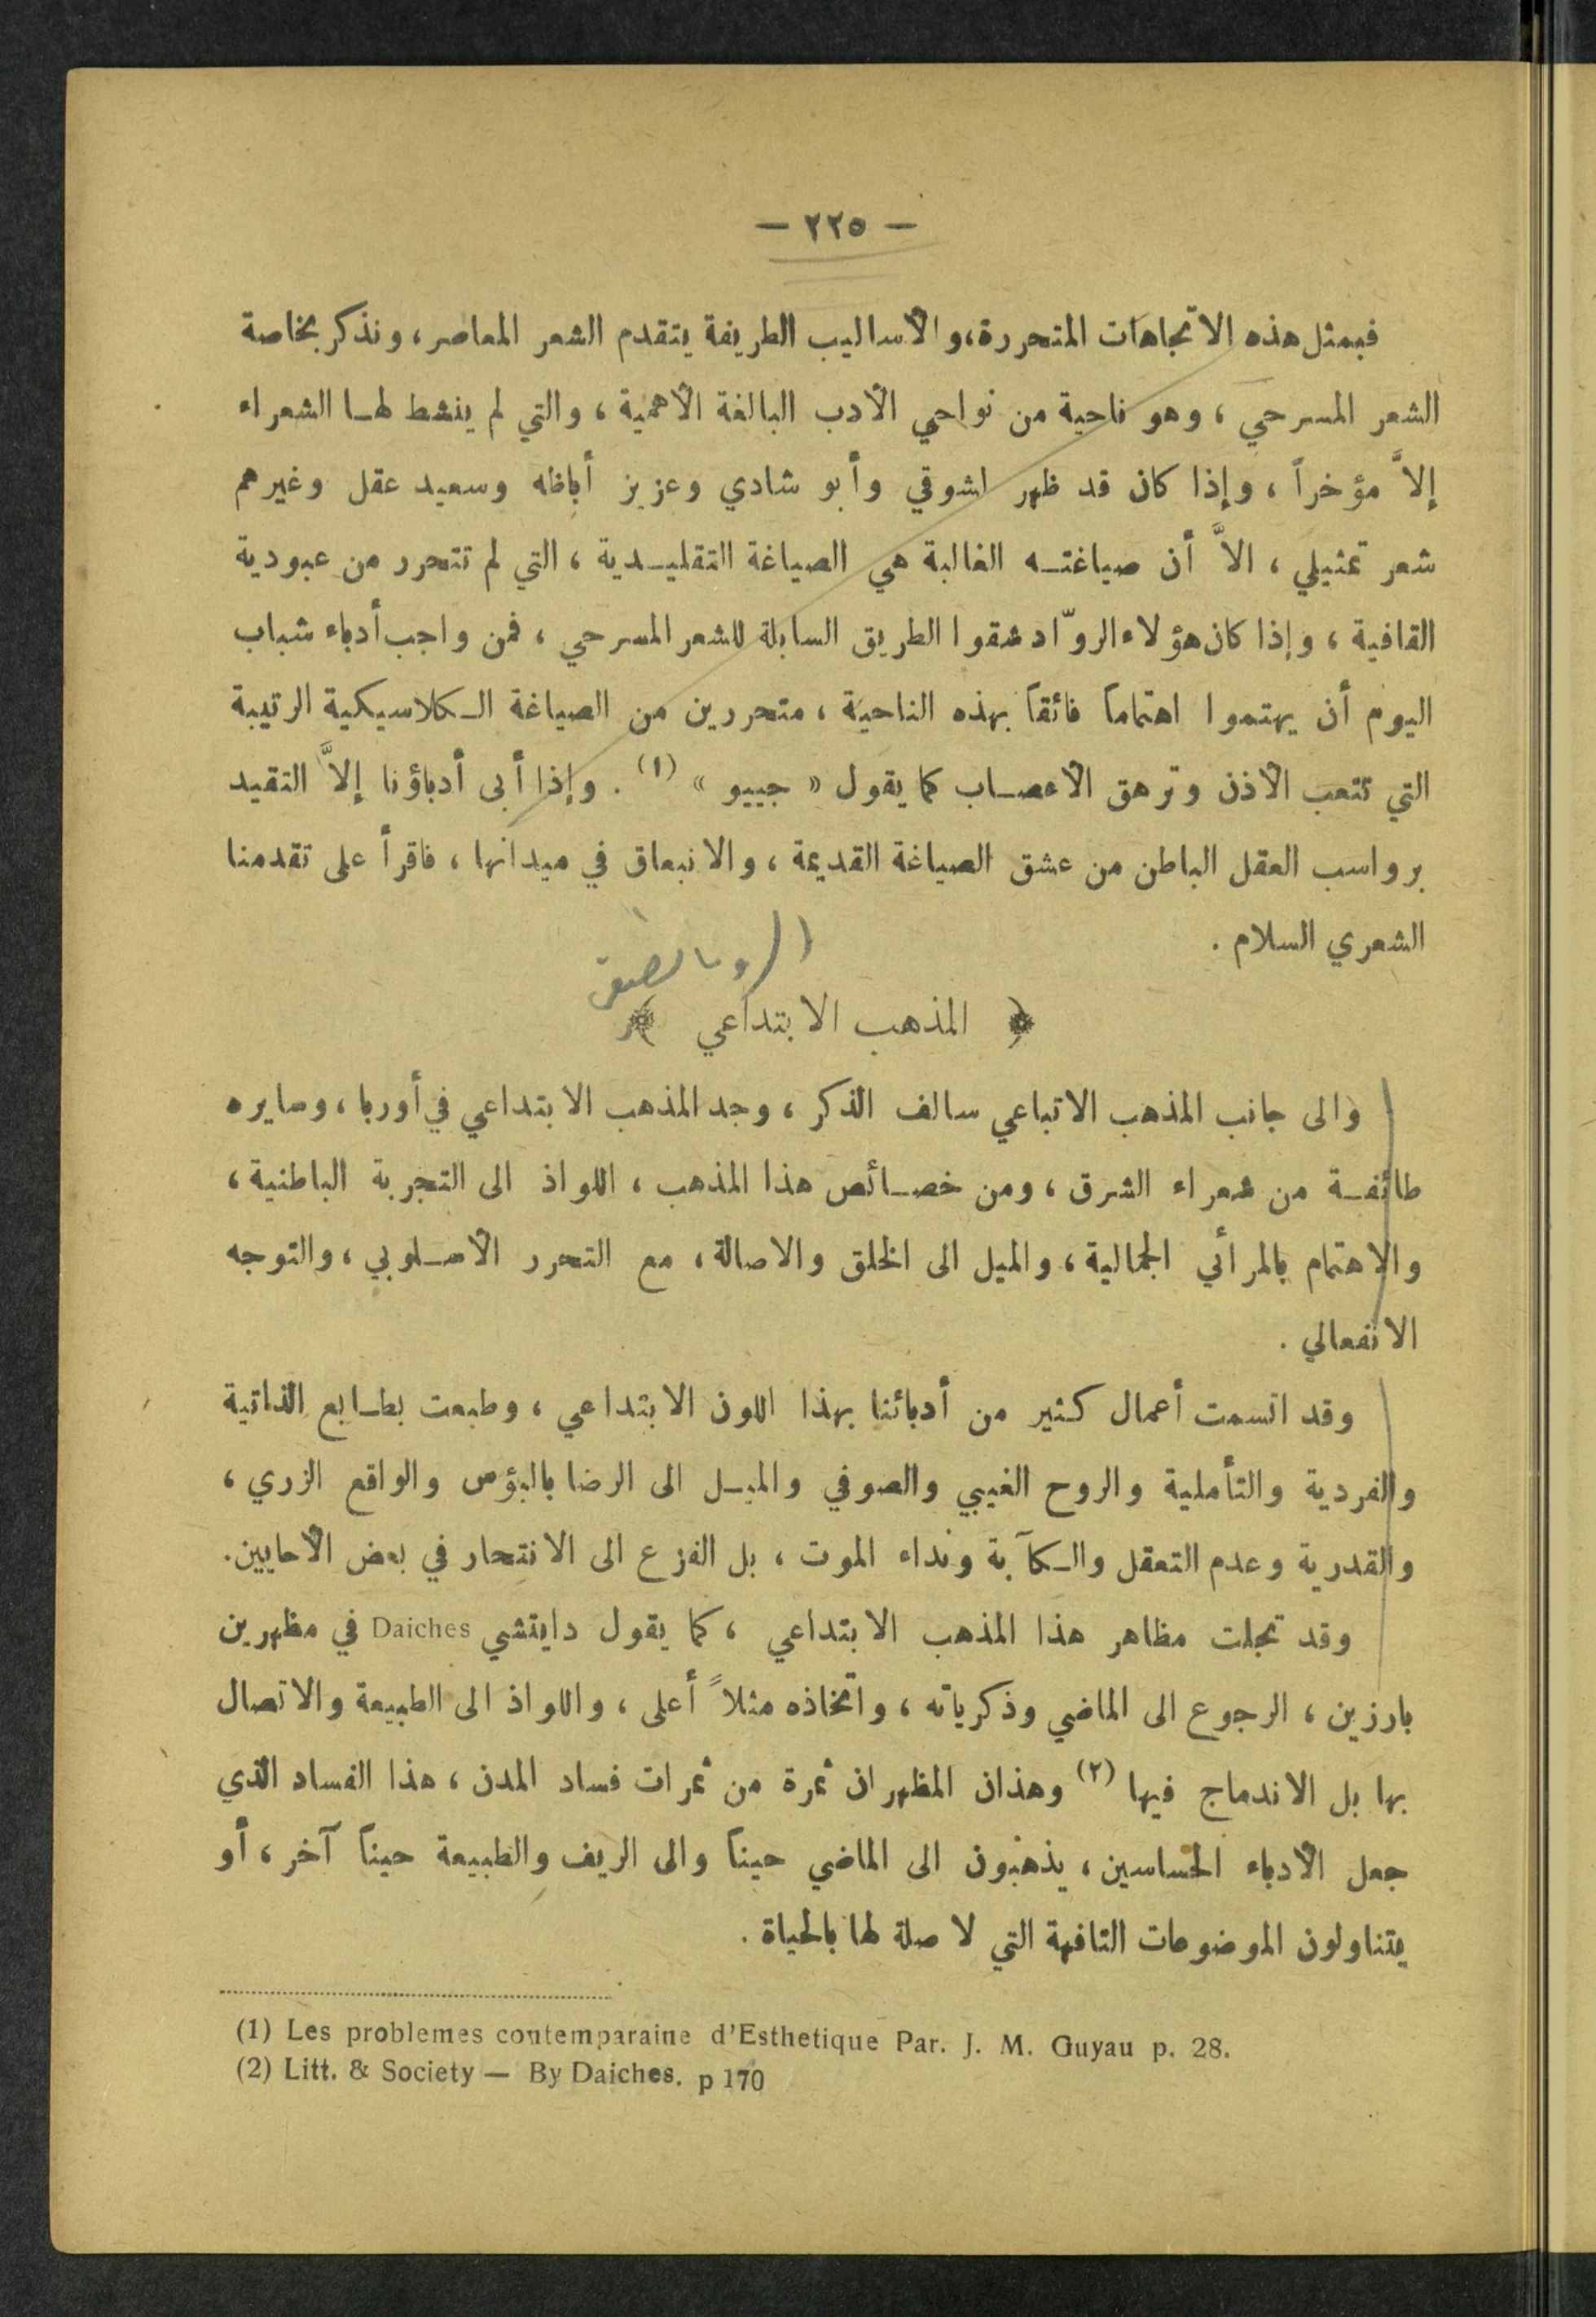 — ٢٢٥ —
فبمثل هذه الاتجاهات المتحررة، والأساليب الطريفة يتقدم الشعر المعاصر، ونذكر بخاصة
الشعر المسرحي، وهو ناحية من نواحي الأدب البالغة الأهمية، والتي لم ينشط لها الشعراء
إلاَّ مؤخراً، وإذا كان قد ظهر لشوقي وأبو شادي وعزيز أباظه وسعيد عقل وغيرهم
شعر تمثيلي، الاَّ أن صياغته الغالبة هي الصياغة التقليدية، التي لم تتحرر من عبودية
القافية، وإذا كان هؤلاء الروّاد شقوا الطريق السابلة للشعر المسرحي، فمن واجب أدباء شباب
اليوم أن يهتموا اهتماماً فائقاً بهذه الناحية، متحررين من الصياغة الكلاسيكية الرتيبة
التي تتعب الأذن وترهق الأعصاب كما يقول « جييو » (١). وإذا أبى أدباؤنا إلاَّ التقيد
برواسب العقل الباطن من عشق الصياغة القديمة، والانبعاق في ميدانها، فاقرأ على تقدمنا
الشعري السلام.
﴿ المذهب الابتداعي ﴾
والى جانب المذهب الاتباعي سالف الذكر، وجد المذهب الابتداعي في أوربا، وسايره
طائفة من شعراء الشرق، ومن خصائص هذا المذهب، اللواذ الى التجربة الباطنية،
والاهتمام بالمرائي الجمالية، والميل الى الخلق والاصالة، مع التحرر الأسلوبي، والتوجه
الانفعالي.
وقد اتسمت أعمال كثير من أدبائنا بهذا اللون الابتداعي، وطبعت بطابع الذاتية
والفردية والتأملية والروح الغيبي والصوفي والميل الى الرضا بالبؤس والواقع الزري،
والقدرية وعدم التعقل والكآبة ونداء الموت، بل الفزع الى الانتحار في بعض الأحايين.
وقد تجلت مظاهر هذا المذهب الابتداعي، كما يقول دايتشي Daiches في مظهرين
بارزين، الرجوع الى الماضي وذكرياته، واتخاذه مثلاً أعلى، واللواذ الى الطبيعة والاتصال
بها بل الاندماج فيها (٢) وهذان المظهران ثمرة من ثمرات فساد المدن، هذا الفساد الذي
جعل الأدباء الحساسين، يذهبون الى الماضي حيناً والى الريف والطبيعة حيناً آخر، أو
يتناولون الموضوعات التافهة التي لا صلة لها بالحياة.
(1) Les problemes contemparaine d'Esthetique Par. J. M. Guyau p. 28.
(2) Litt. & Society — By Daiches. p 170